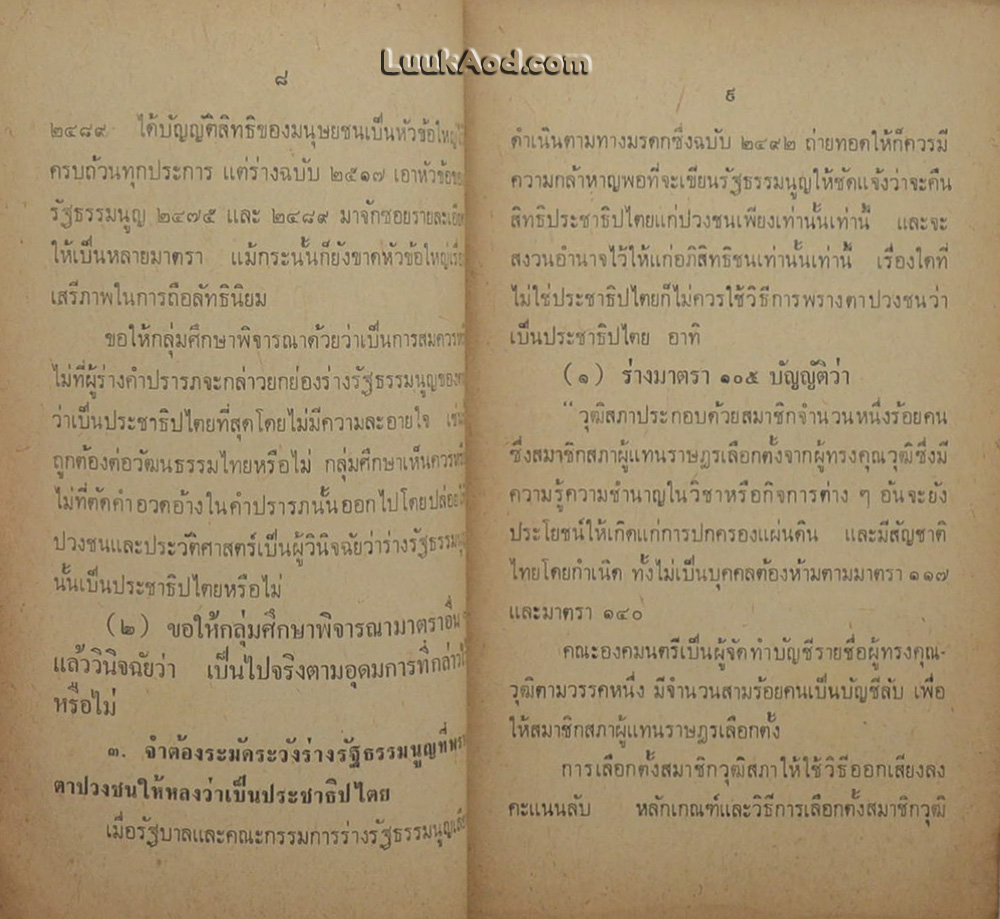 LuukAod.com
๘
๒๔๘๙ ได้บัญญัติสิทธิของมนุษยชนเป็นหัวข้อใหญ่
ครบถ้วนทุกประการ แต่ร่างฉบับ ๒๕๑๗ เอาหัวข้อ
รัฐธรรมนูญ ๒๔๗๕ และ ๒๔๘๙ มาจักซอยรายละเอีย
ให้เป็นหลายมาตรา แม้กระนั้นก็ยังขาดหัวข้อใหญ่
เสรีภาพในการถือลัทธินิยม
ขอให้กลุ่มศึกษาพิจารณาด้วยว่าเป็นการสมควร
ไม่ที่ผู้ร่างคำปรารภจะกล่าวยกย่องร่างรัฐธรรมนูญของ
ว่าเป็นประชาธิปไตยที่สุดโดยไม่มีความละอายใจ เช่น
ถูกต้องต่อวัฒนธรรมไทยหรือไม่ กลุ่มศึกษาเห็นควร
ไม่ที่ตัดคำอวดอ้างในคำปรารภนั้นออกไปโดยปล่อย
ปวงชนและประวัติศาสตร์เป็นผู้วินิจฉัยว่าร่างรัฐธรรมนู
นั้นเป็นประชาธิปไตยหรือไม่
(๒) ขอให้กลุ่มศึกษาพิจารณามาตราอื่น
แล้ววินิจฉัยว่า เป็นไปจริงตามอุดมการที่กล่าว
หรือไม่
๓. จำต้องระมัดระวังร่างรัฐธรรมนูญที่พรา
ตาปวงชนให้หลงว่าเป็นประชาธิปไตย
เมื่อรัฐบาลและคณะกรรมการร่างรัฐธรรมนูญ
๙
ดำเนินตามทางมรดกซึ่งฉบับ ๒๔๙๒ ถ่ายทอดให้ก็ควรมี
ความกล้าหาญพอที่จะเขียนรัฐธรรมนูญให้ชัดแจ้งว่าจะคืน
สิทธิประชาธิปไตยแก่ปวงชนเพียงเท่านั้นเท่านี้ และจะ
สงวนอำนาจไว้ให้แก่อภิสิทธิชนเท่านั้นเท่านี้ เรื่องใดที่
ไม่ใช่ประชาธิปไตยก็ไม่ควรใช้วิธีการพรางตาปวงชนว่า
เป็นประชาธิปไตย อาทิ
(๑) ร่างมาตรา ๑๐๕ บัญญัติว่า
“วุฒิสภาประกอบด้วยสมาชิกจำนวนหนึ่งร้อยคน
ซึ่งสมาชิกสภาผู้แทนราษฎรเลือกตั้งจากผู้ทรงคุณวุฒิซึ่งมี
ความรู้ความชำนาญในวิชาหรือกิจการต่าง ๆ อันจะยัง
ประโยชน์ให้เกิดแก่การปกครองแผ่นดิน และมีสัญชาติ
ไทยโดยกำเนิด ทั้งไม่เป็นบุคคลต้องห้ามตามมาตรา ๑๑๗
และมาตรา ๑๔๐
คณะองคมนตรีเป็นผู้จัดทำบัญชีรายชื่อผู้ทรงคุณ-
วุฒิตามวรรคหนึ่ง มีจำนวนสามร้อยคนเป็นบัญชีลับ เพื่อ
ให้สมาชิกสภาผู้แทนราษฎรเลือกตั้ง
การเลือกตั้งสมาชิกวุฒิสภาให้ใช้วิธีออกเสียงลง
คะแนนลับ หลักเกณฑ์และวิธีการเลือกตั้งสมาชิกวุฒิ